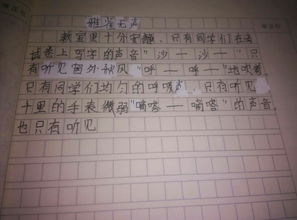 鸦雀无声
教室里十分安静，只有同学们在考
试卷上写字的声音"沙—沙—"只
有听见窗外秋风"呼—呼—"地吹着，
只有同学们均匀的呼吸声，只有听见
十里的手表微弱"嘀嗒—嘀嗒"的声音，
也只有听见